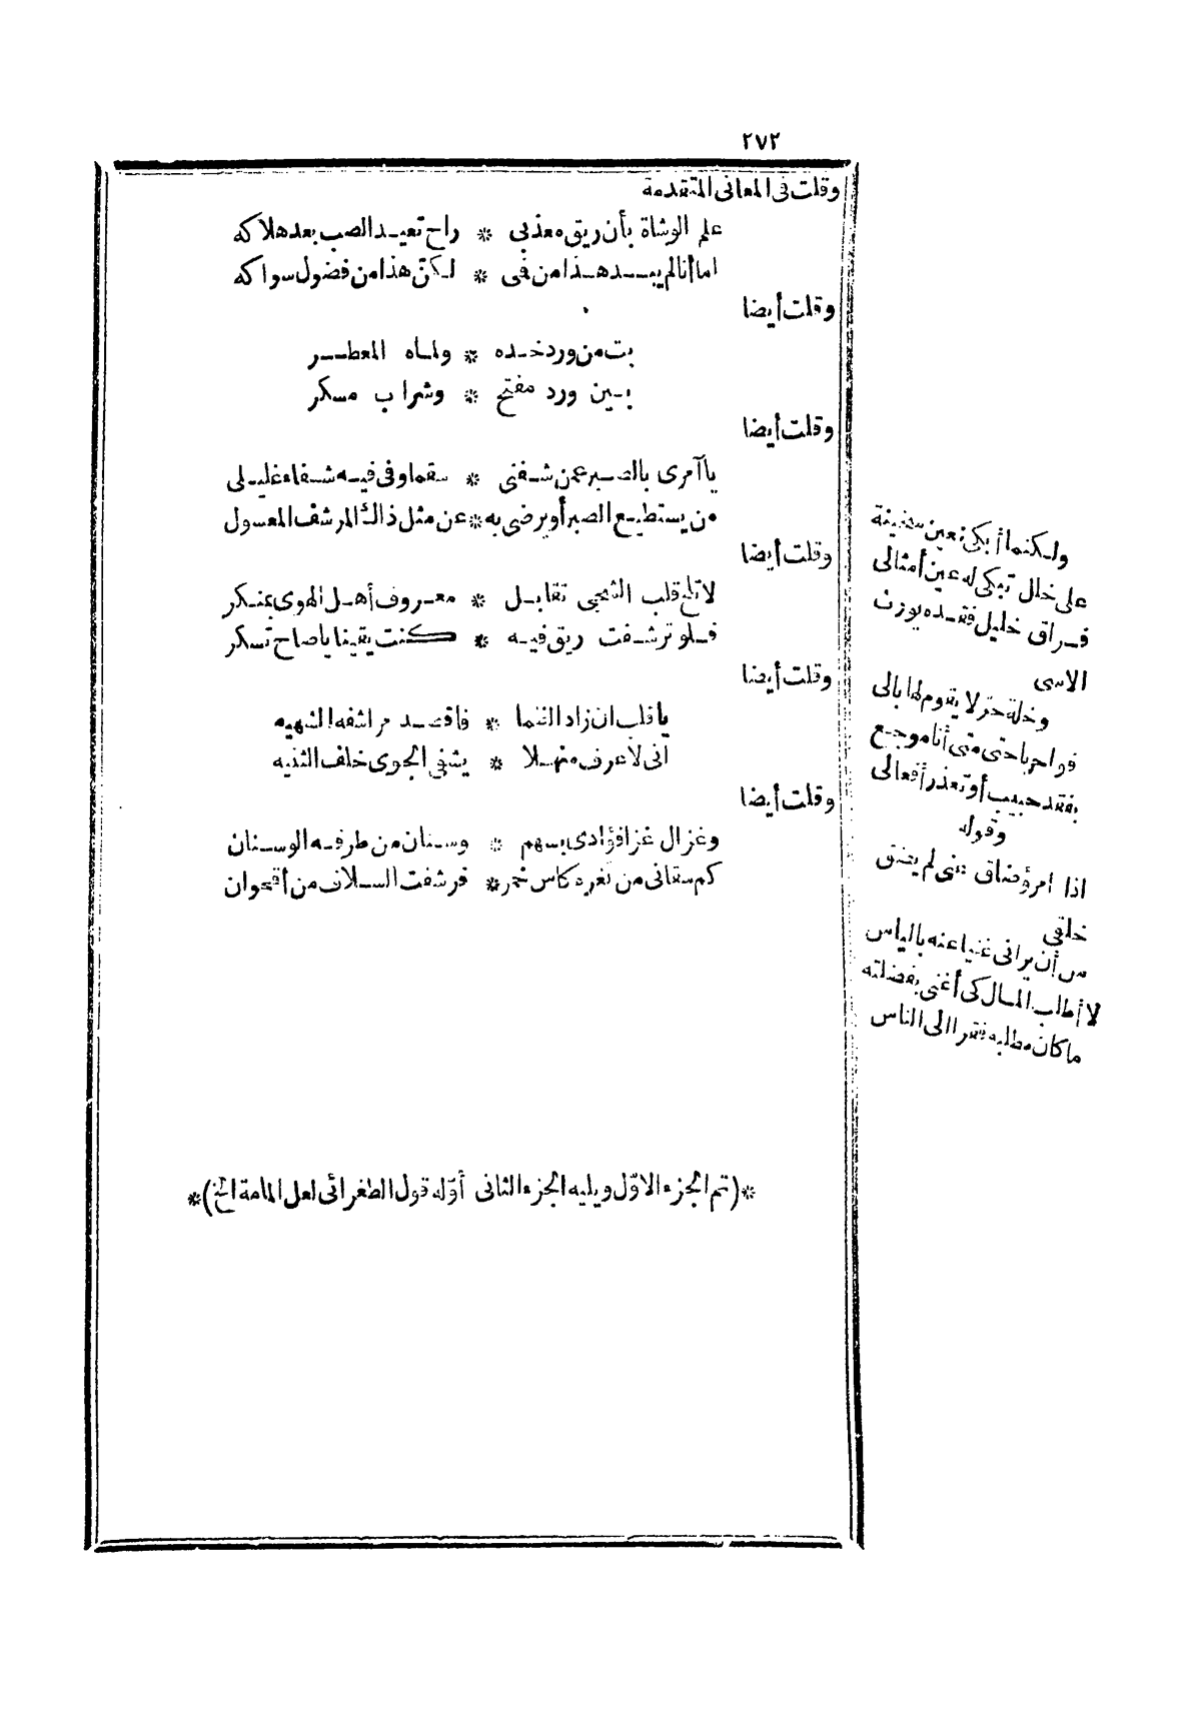 ٢٧٢
وقلت فى المعانى المتقدمة
علم الوشاة بأن ريق معذبى * راح تعيد الصب بعد هلاكه
اما أنا لم يبد هذا من فمى * لكن هذا من فضول سواكه
وقلت أيضا
بت من ورد خده * ولماه المعطر
بين ورد مفتح * وشراب مسكر
وقلت أيضا
يا آمرى بالصبر عمن شفنى * سقما وفى فيه شفاء غليلى
من يستطيع الصبر أو يرضى به * عن مثل ذاك المرشف المعسول
وقلت أيضا
لا تلح قلب الشجى تقابل * معروف أهل الهوى بمنكر
فلو ترشفت ريق فيه * كنت يقينا يا صاح تسكر
وقلت أيضا
يا قلب ان زاد الظما * فاقصد مراشفه الشهيه
انى لاعرف منهلا * يشفى الجوى خلف الثنيه
وقلت أيضا
وغزال غزا فؤادى بسهم * وسنان من طرفه الوسنان
كم سقانى من ثغره كاس خمر * فرشفت السلاف من أقحوان
*(تم الجزء الاوّل ويليه الجزء الثانى أوّله قول الطغرائى لعل المامة الخ)*
ولكنما أبكى بعين سخينة
على خلل تبكى له عين أمثالى
فراق خليل فقده يورث
الاسى
وخلة حر لا يقوم لها بالى
فواحربا حتى متى أنا موجع
بفقد حبيب أو تعذر أفعالى
وقوله
اذا امرؤ ضاق عنى لم يضق
خلقى
من أن يرانى غنيا عنه بالياس
لا أطلب المال كى أغنى بفضلته
ما كان مطلبه فقرا الى الناس